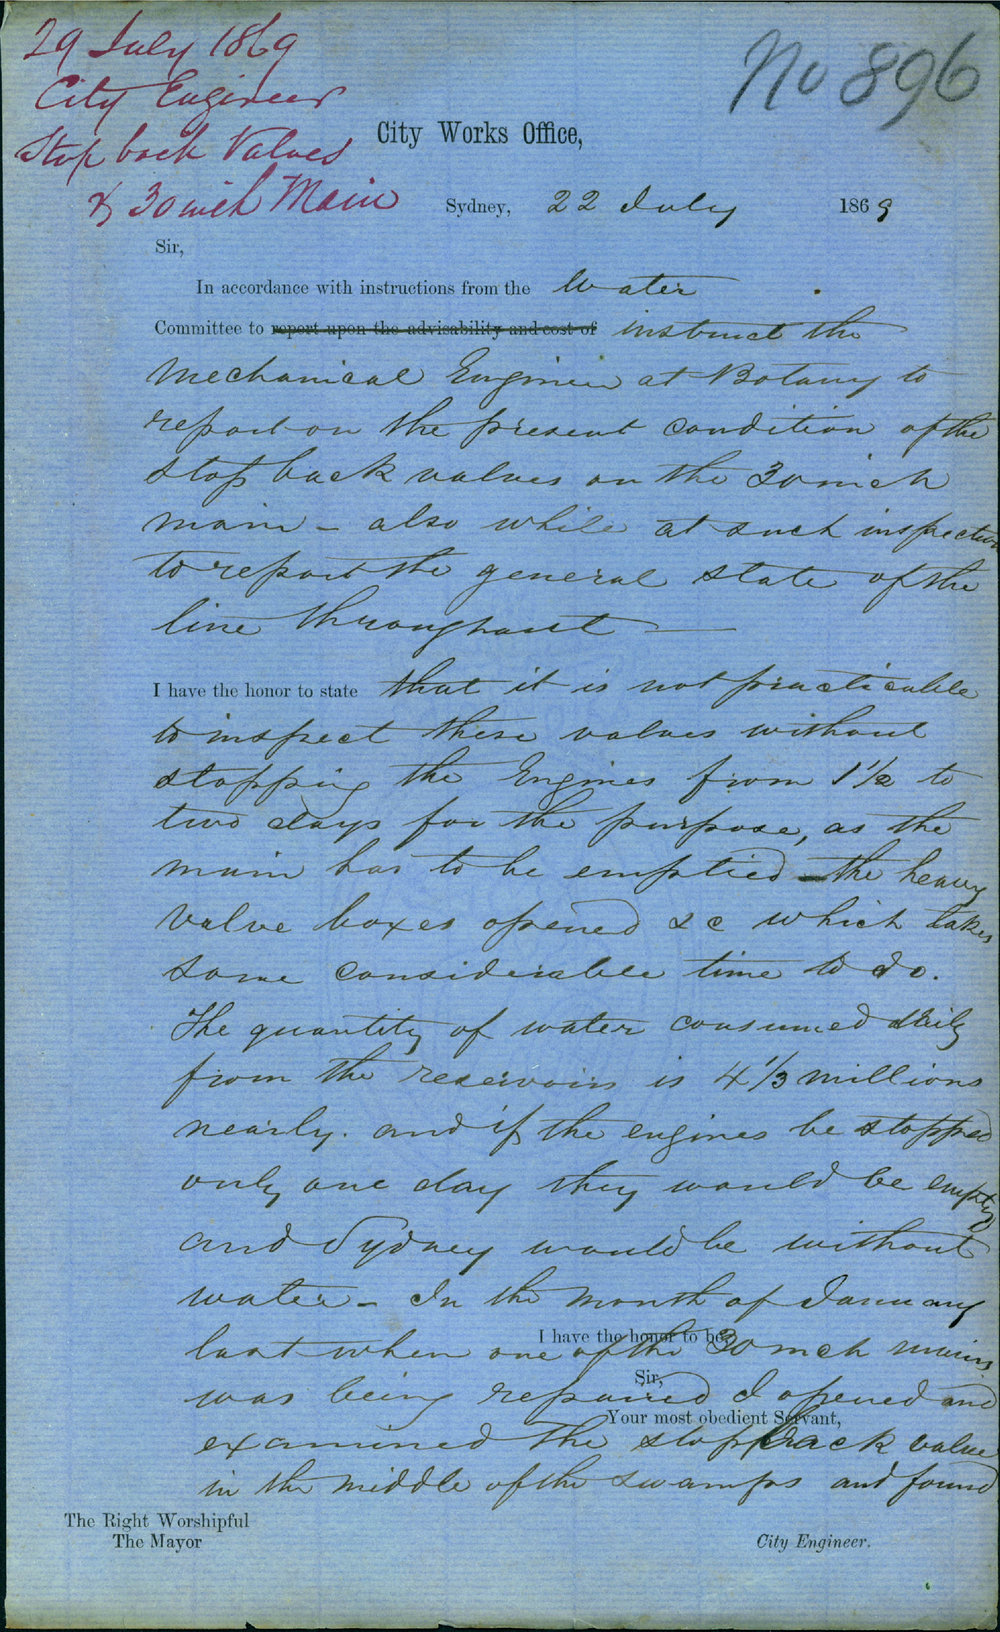 29 July 1869
City Engineer
Stop back Valves
& 30 inch Main
No 896
City Works Office,
Sydney, 22 July 1869
Sir,
In accordance with instructions from the Water
Committee to report upon the advisability and cost of instruct the
Mechanical Engineer at Botany to
report on the present condition of the
stop back valves on the 30 inch
main - also while at such inspection
to report the general state of the
line throughout —
I have the honor to state that it is not practicable
to inspect these valves without
stopping the Engines from 1 1/2 to
two days for the purpose, as the
main has to be emptied - the heavy
valve boxes opened &c which takes
some considerable time to do.
The quantity of water consumed daily
from the reservoirs is 4 1/3 millions
nearly. and if the engines be stopped
only one day they would be empty
and Sydney would be without
water - In the month of January
I have the honor to be,
last when one of the 30 inch mains
Sir,
was being repaired I opened and
Your most obedient Servant,
examined the stop back valve
in the middle of the swamps and found
The Right Worshipful
The Mayor
City Engineer.